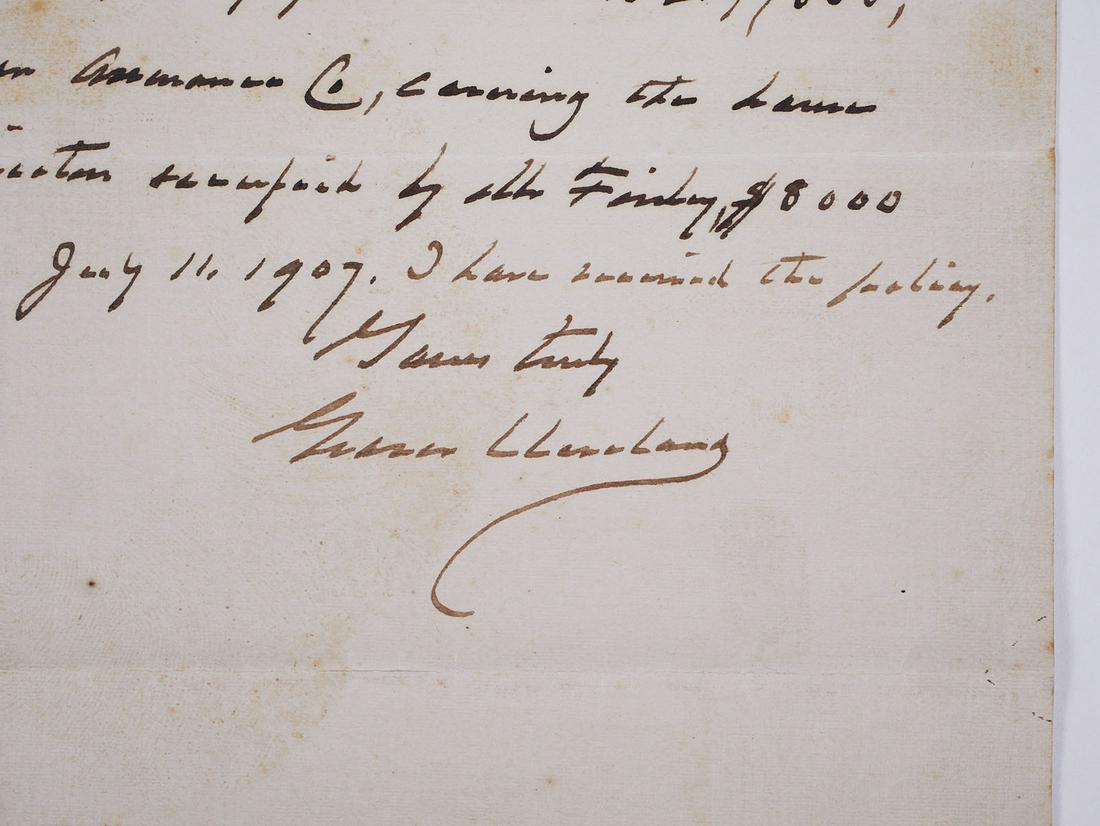 Assurance Co, covering the house
occupied by Mr Finley, $8000
July 11. 1907. I have received the policy.
Yours truly
Grover Cleveland